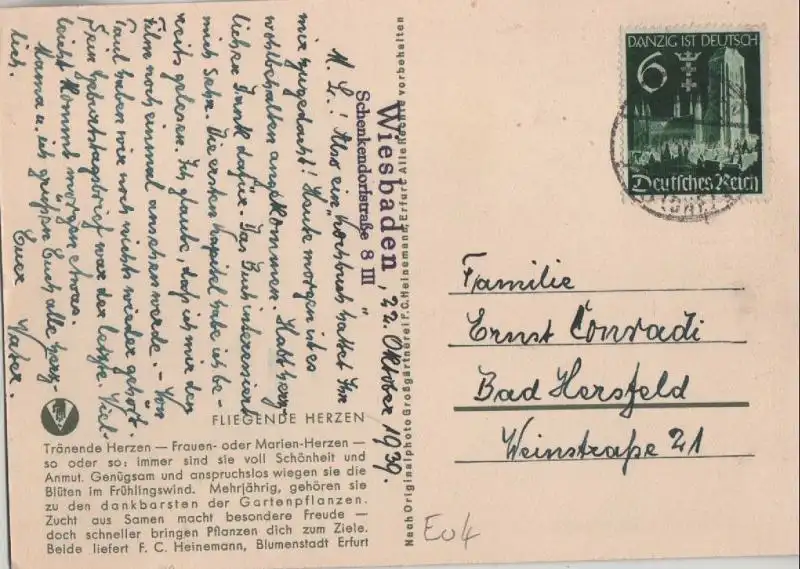 Wiesbaden, 22. Oktober 1939.
Schenkendorfstraße 8 III
M. L.! Also ein „Kochbuch" hattet Ihr
mir zugedacht! Heute morgen ist es
wohlbehalten angekommen. Habt herz-
lichen Dank dafür. Das Buch interessiert
mich sehr. Die ersten Kapitel habe ich be-
reits gelesen. Ich glaube, daß ich mir den
Film noch einmal ansehen werde. – Von
Paul haben wir noch nichts wieder gehört.
Sein Geburtstagsbrief war der letzte. Viel-
leicht kommt morgen etwas.
Mama u. ich grüßen Euch alle herz-
lich.
Euer Vater.
FLIEGENDE HERZEN
Tränende Herzen — Frauen- oder Marien-Herzen —
so oder so: immer sind sie voll Schönheit und
Anmut. Genügsam und anspruchslos wiegen sie die
Blüten im Frühlingswind. Mehrjährig, gehören sie
zu den dankbarsten der Gartenpflanzen.
Zucht aus Samen macht besondere Freude —
doch schneller bringen Pflanzen dich zum Ziele.
Beide liefert F. C. Heinemann, Blumenstadt Erfurt
Nach Originalphoto Großgärtnerei F. C. Heinemann, Erfurt Alle Rechte vorbehalten
DANZIG IST DEUTSCH
6
Deutsches Reich
Familie
Ernst Conradi
Bad Hersfeld
Weinstraße 21